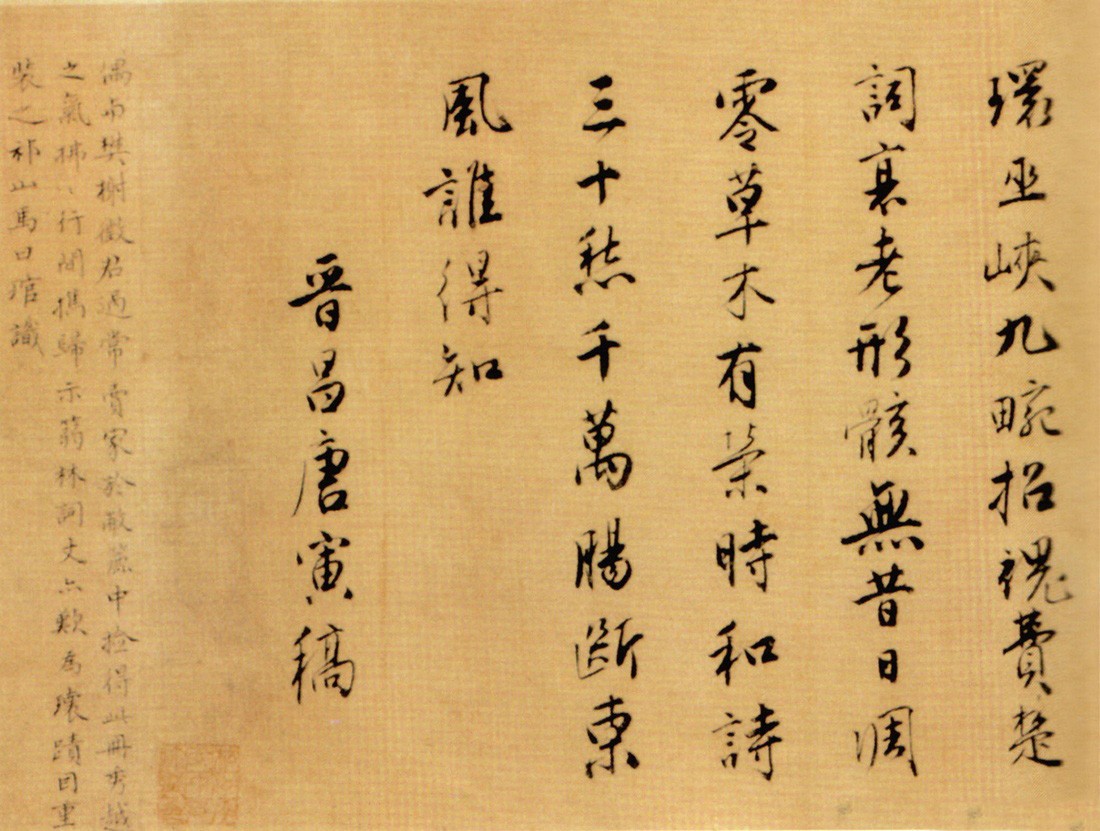 環巫峽九畹招魂費楚
詞衰老形骸無昔日凋
零草木有榮時和詩
三十愁千萬腸斷東
風誰得知
晉昌唐寅稿
偶與樊榭徵君過常賣家於敝簏中撿得此冊秀越
之氣拂〻行間攜歸示蒻林詞丈亦歎為瓌蹟因重
裝之祁山馬曰琯識